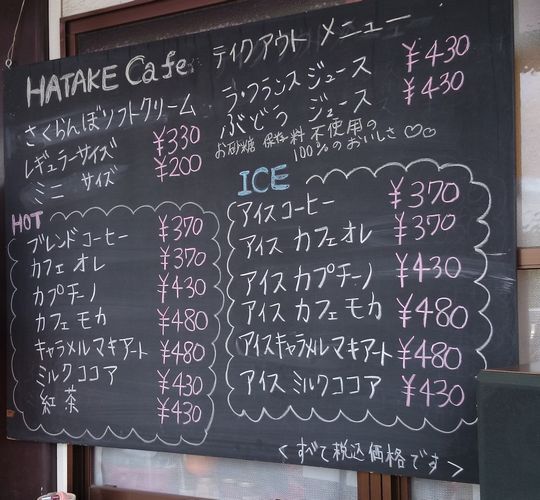 HATAKE Cafe テイクアウト メニュー
さくらんぼソフトクリーム
レギュラーサイズ ¥330
ミニ サイズ ¥200
ラ・フランス ジュース ¥430
ぶどう ジュース ¥430
お砂糖 保存料 不使用の
100%のおいしさ♡♡
HOT
ブレンド コーヒー ¥370
カフェ オレ ¥370
カプチーノ ¥430
カフェ モカ ¥480
キャラメルマキアート ¥480
ミルクココア ¥430
紅茶 ¥430
ICE
アイスコーヒー ¥370
アイス カフェ オレ ¥370
アイス カプチーノ ¥430
アイス カフェ モカ ¥480
アイスキャラメルマキアート ¥480
アイス ミルクココア ¥430
<すべて税込価格です>